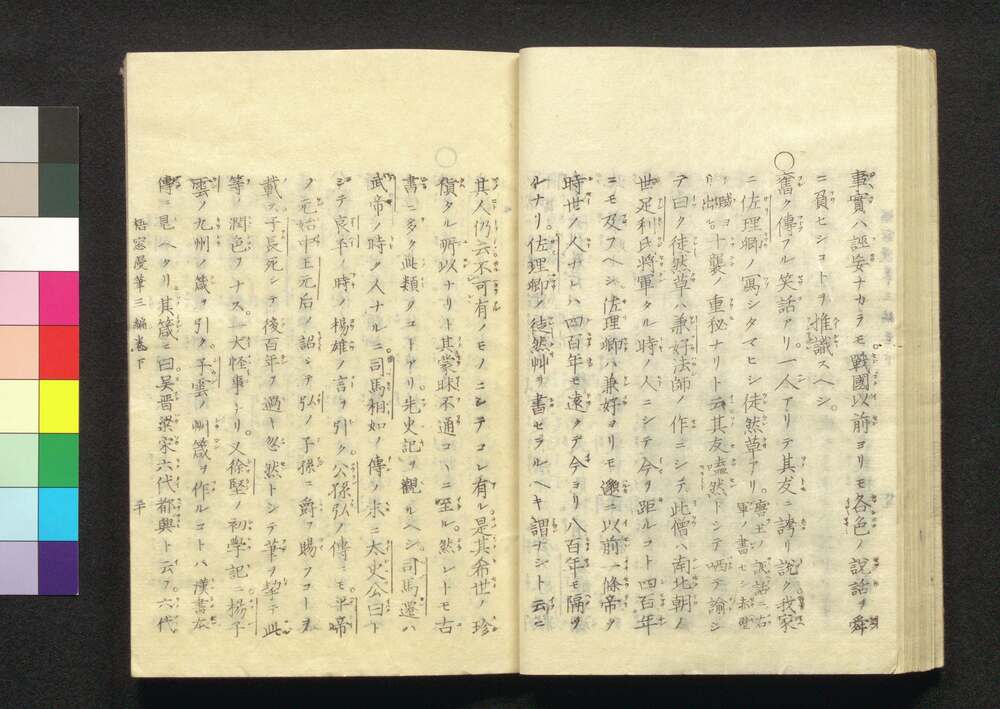 事實ハ誣妄ナカラモ戰國以前ヨリモ各色ノ說話ヲ舜
ニ負ヒシコトヲ推識スヘシ
○舊ク傳フル笑話アリ一人アリテ其友ニ誇リ說ク我家
ニ佐理卿ノ寫シタマヒシ徒然草アリ
十襲ノ重秘ナリト云其友嗑然トシテ哂テ諭シ
テ曰ク徒然草ハ兼好法師ノ作ニシテ此僧ハ南北朝ノ
世足利氏將軍タル時ノ人ニシテ今ヲ距ルコト四百年
ニモ及フヘシ佐理卿ハ兼好ヨリモ邈ニ以前一條帝ノ
時世ノ人ナレハ四百年モ遠クテ今ヨリ八百年モ隔タ
ルナリ佐理卿ノ徒然艸ヲ書セラルヘキ謂ナシト云ニ
其人仍云不可有ノモノニシテコレ有ル是其希世ノ珍
○貨タル所以ナリト其蒙昧不通コヽニ至ル然レトモ古
書ニ多ク此類ノコトアリ先史記ヲ觀ルヘシ司馬遷ハ
武帝ノ時ノ人ナルニ司馬相如ノ傳ノ末ニ太史公曰ト
シテ哀平ノ時ノ楊雄ノ言ヲ引ク公孫弘ノ傳ニモ平帝
ノ元始中王元后ノ詔シテ弘ノ子孫ニ爵ヲ賜フコトヲ
載ス子長死シテ後百年ヲ過キ忽然トシテ筆ヲ把テ此
等ノ潤色ヲナス一大怪事ナリ又徐堅ノ初學記ニ揚子
雲ノ九州ノ箴ヲ引ク子雲ノ州箴ヲ作ルコトハ漢書本
傳ニ見ヘタリ其箴ニ曰吳晉梁宋六代都興ト云フ六代
梧窓漫筆三編卷下